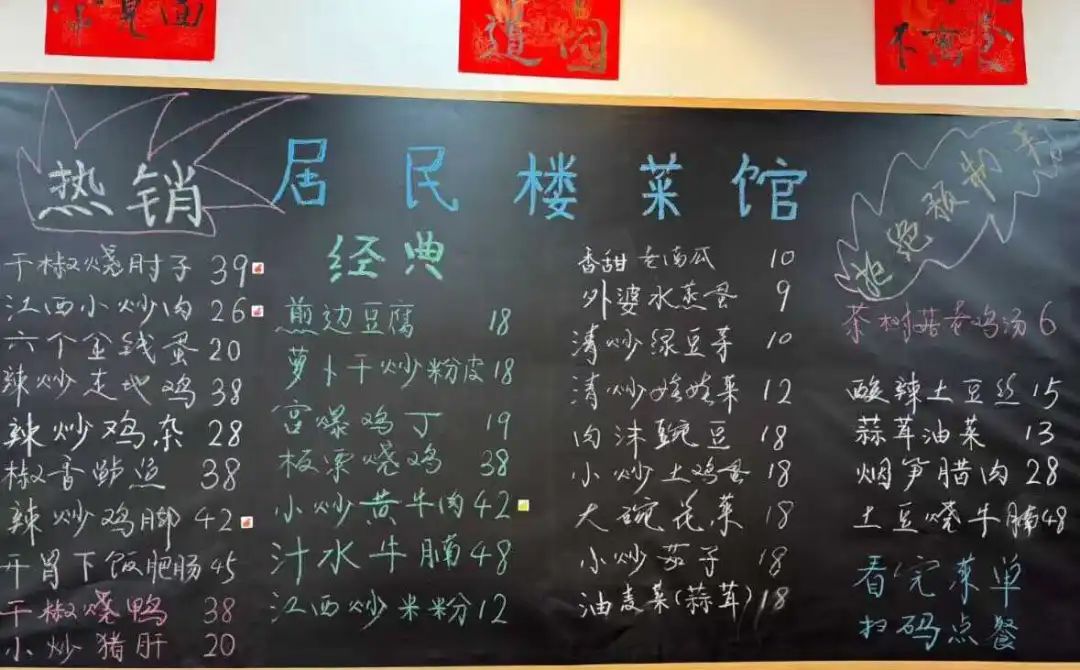 意面
道园
不离
居民楼菜馆
热销
干椒烧肘子 39
江西小炒肉 26
六个金钱蛋 20
辣炒走地鸡 38
辣炒鸡杂 28
椒香鲈鱼 38
辣炒鸡脚 42
开胃下饭肥肠 45
干椒烧鸭 38
小炒猪肝 20
经典
煎边豆腐 18
萝卜干炒粉皮 18
宫爆鸡丁 19
板栗烧鸡 38
小炒黄牛肉 42
汁水牛腩 48
江西炒米粉 12
香甜老南瓜 10
外婆水蒸蛋 9
清炒绿豆芽 10
清炒娃娃菜 12
肉沫豌豆 18
小炒土鸡蛋 18
大碗花菜 18
小炒茄子 18
油麦菜(蒜茸) 18
拒绝预制菜
茶树菇老鸡汤 6
酸辣土豆丝 15
蒜茸油菜 13
烟笋腊肉 28
土豆烧牛腩 48
看完菜单
扫码点餐